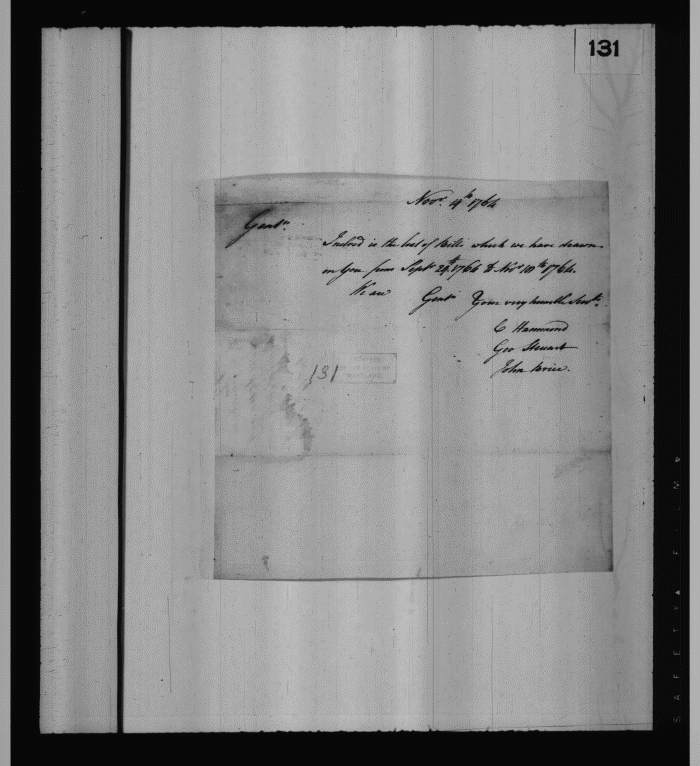 131
Novr. 14th 1764
Gentn.
Inclosd is the list of Bills which we have drawn
on you from Septr. 24th 1764 to Novr. 10th 1764.
We are Gentn. Your very humble Servts.
C Hammond
Geo Steuart
John Brice.
131
SAFETY FILM